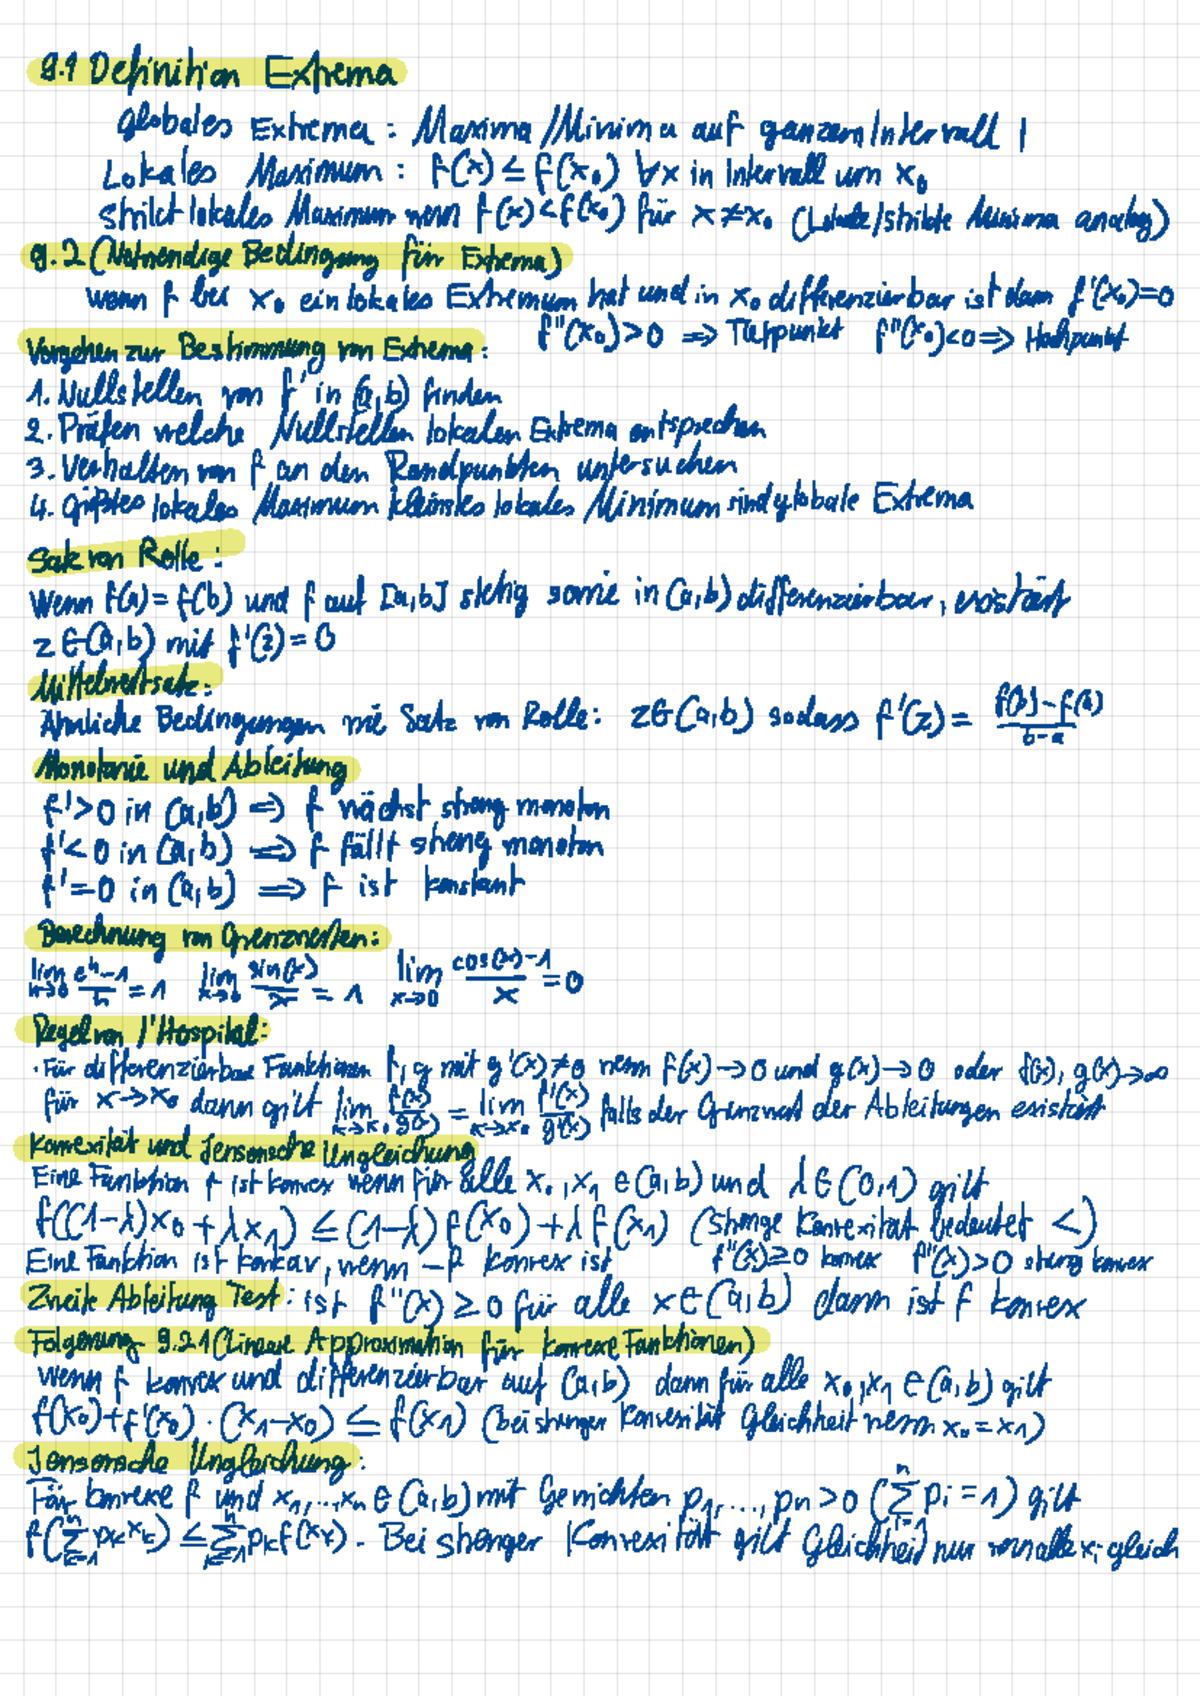 9.1 Definition Extrema
globales Extrema: Maxima/Minima auf ganzem Intervall I
Lokales Maximum: f(x) ≤ f(x₀) ∀x in Intervall um x₀
strikt lokales Maximum wenn f(x) < f(x₀) für x ≠ x₀ (Lokale/strikte Minima analog)
9.2 (Notwendige Bedingung für Extrema)
wenn f bei x₀ ein lokales Extremum hat und in x₀ differenzierbar ist dann f'(x₀)=0
f''(x₀)>0 ⇒ Tiefpunkt f''(x₀)<0 ⇒ Hochpunkt
Vorgehen zur Bestimmung von Extrema:
1. Nullstellen von f' in (a,b) finden
2. Prüfen welche Nullstellen lokalen Extrema entsprechen
3. Verhalten von f an den Randpunkten untersuchen
4. größtes lokales Maximum kleinstes lokales Minimum sind globale Extrema
Satz von Rolle:
Wenn f(a)=f(b) und f auf [a,b] stetig sowie in (a,b) differenzierbar, existiert
z∈(a,b) mit f'(z)=0
Mittelwertsatz:
Ähnliche Bedingungen wie Satz von Rolle: z∈(a,b) sodass f'(z) = (f(b)-f(a))/(b-a)
Monotonie und Ableitung
f'>0 in (a,b) ⇒ f wächst streng monoton
f'<0 in (a,b) ⇒ f fällt streng monoton
f'=0 in (a,b) ⇒ f ist konstant
Berechnung von Grenzwerten:
lim h→0 (eʰ-1)/h = 1 lim x→0 sin(x)/x = 1 lim x→0 (cos(x)-1)/x = 0
Regel von l'Hospital:
· Für differenzierbare Funktionen f, g mit g'(x)≠0 wenn f(x)→0 und g(x)→0 oder f(x), g(x)→∞
für x→x₀ dann gilt lim x→x₀ f(x)/g(x) = lim x→x₀ f'(x)/g'(x) falls der Grenzwert der Ableitungen existiert
Konvexität und Jensensche Ungleichung
Eine Funktion f ist konvex wenn für alle x₀, x₁ ∈(a,b) und λ∈(0,1) gilt
f((1-λ)x₀+λx₁) ≤ (1-λ)f(x₀)+λf(x₁) (strenge Konvexität bedeutet <)
Eine Funktion ist konkav, wenn -f konvex ist f''(x)≥0 konvex f''(x)>0 streng konvex
Zweite Ableitung Test: ist f''(x) ≥ 0 für alle x∈(a,b) dann ist f konvex
Folgerung 9.21 (Lineare Approximation für konvexe Funktionen)
Wenn f konvex und differenzierbar auf (a,b) dann für alle x₀, x₁ ∈(a,b) gilt
f(x₀)+f'(x₀)·(x₁-x₀) ≤ f(x₁) (bei strenger Konvexität Gleichheit wenn x₀=x₁)
Jensensche Ungleichung:
Für konvexe f und x₁,...,xₙ∈(a,b) mit Gewichten p₁,...,pₙ>0 (∑ⁿᵢ₌₁ pᵢ=1) gilt
f(∑ⁿₖ₌₁ pₖxₖ) ≤ ∑ⁿₖ₌₁ pₖf(xₖ). Bei strenger Konvexität gilt Gleichheit nur wenn alle xᵢ gleich